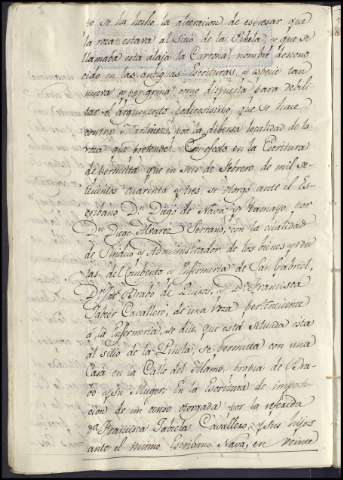 to se ha hecho la alteracion de espresar que
la roza estava al Sitio de la , y que se
llamaba esta abajo la Carrona? nombre descono
cido en las antiguas Escrituras, y especie tan
nueva y peregrina como dispuesta para debili
tar el argumento poderosisimo que se hace
contra Martinez por la diversa localidad de la
roza que pretende. Con efecto en la Escritura
de permuta que en nueve de Febrero de mil se
tecientos cuarenta y tres se otorgó ante el Es
cribano Dn. Diego de Nava y Tamayo por
Dn. Juan Alvarez Serrano, con la cualidad
de Sindico y Administrador de los bienes y ren
tas del Combento y Enfermeria de San Gabriel,
Dn. José Prado de , y Da. Francisca
Cavallero, de una roza perteneciente
á la Enfermeria se dice que esta situada esta
al sitio de la , se permuta con una
Casa en la Calle del Alamo, propia de Pra
do y su Muger: En la Escritura de imposi
cion de un censo otorgada por la referida
Da. Francisca Cavallero, y sus hijos
ante el mismo Escribano Nava, en veinte